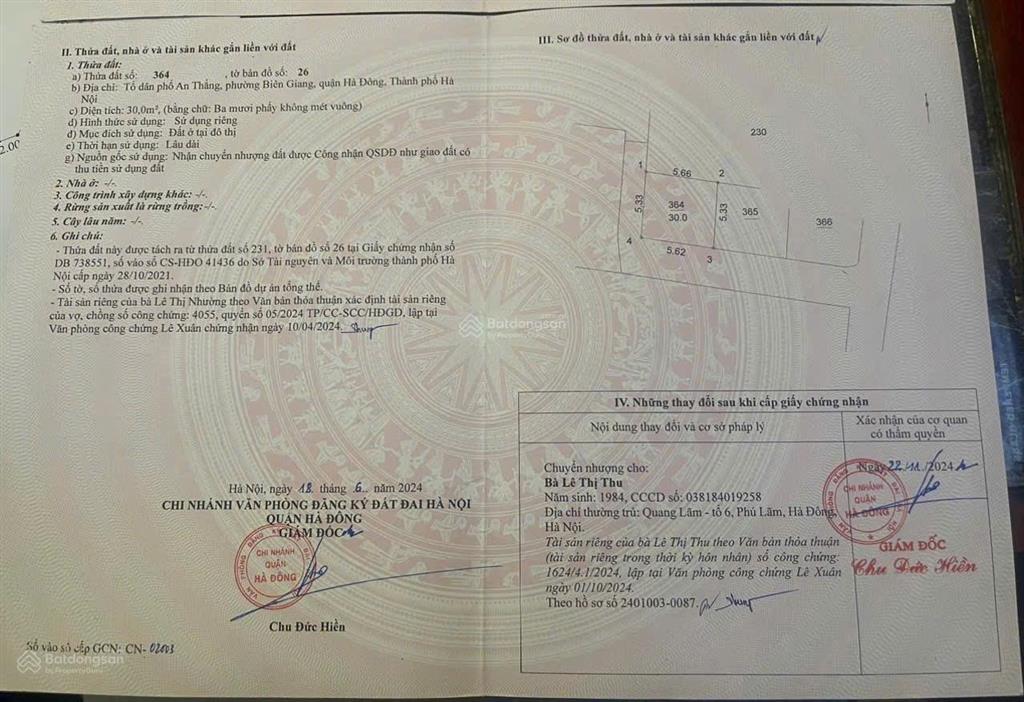 II. Thửa đất, nhà ở và tài sản khác gắn liền với đất
1. Thửa đất:
a) Thửa đất số: 364 , tờ bản đồ số: 26
b) Địa chỉ: Tổ dân phố An Thắng, phường Biên Giang, quận Hà Đông, Thành phố Hà
Nội
c) Diện tích: 30,0m², (bằng chữ: Ba mươi phẩy không mét vuông)
d) Hình thức sử dụng: Sử dụng riêng
đ) Mục đích sử dụng: Đất ở tại đô thị
e) Thời hạn sử dụng: Lâu dài
g) Nguồn gốc sử dụng: Nhận chuyển nhượng đất được Công nhận QSDĐ như giao đất có
thu tiền sử dụng đất
2. Nhà ở: -/-.
3. Công trình xây dựng khác: -/-.
4. Rừng sản xuất là rừng trồng: -/-.
5. Cây lâu năm: -/-.
6. Ghi chú:
- Thửa đất này được tách ra từ thửa đất số 231, tờ bản đồ số 26 tại Giấy chứng nhận số
DB 738551, số vào sổ CS-HĐO 41436 do Sở Tài nguyên và Môi trường thành phố Hà
Nội cấp ngày 28/10/2021.
- Số tờ, số thửa được ghi nhận theo Bản đồ dự án tổng thể.
- Tài sản riêng của bà Lê Thị Nhường theo Văn bản thỏa thuận xác định tài sản riêng
của vợ, chồng số công chứng: 4055, quyển số 05/2024 TP/CC-SCC/HĐGD, lập tại
Văn phòng công chứng Lê Xuân chứng nhận ngày 10/04/2024.
2.00
Hà Nội, ngày 18 tháng 6 năm 2024
CHI NHÁNH VĂN PHÒNG ĐĂNG KÝ ĐẤT ĐAI HÀ NỘI
QUẬN HÀ ĐÔNG
GIÁM ĐỐC
CHI NHÁNH
QUẬN
HÀ ĐÔNG
Chu Đức Hiền
Số vào sổ cấp GCN: CN- 02003
Batdongsan
by PropertyGuru
III. Sơ đồ thửa đất, nhà ở và tài sản khác gắn liền với đất
230
1
5.66
2
5.33
364
30.0
5.33
365
366
4
5.62
3
Batdongsan
by PropertyGuru
IV. Những thay đổi sau khi cấp giấy chứng nhận
Nội dung thay đổi và cơ sở pháp lý
Xác nhận của cơ quan
có thẩm quyền
Chuyển nhượng cho:
Bà Lê Thị Thu
Năm sinh: 1984, CCCD số: 038184019258
Địa chỉ thường trú: Quang Lãm - tổ 6, Phú Lãm, Hà Đông,
Hà Nội.
Tài sản riêng của bà Lê Thị Thu theo Văn bản thỏa thuận
(tài sản riêng trong thời kỳ hôn nhân) số công chứng:
1624/4.1/2024, lập tại Văn phòng công chứng Lê Xuân
ngày 01/10/2024.
Theo hồ sơ số 2401003-0087.
Ngày 22/11/2024
CHI NHÁNH
QUẬN
HÀ ĐÔNG
GIÁM ĐỐC
Chu Đức Hiền
Batdongsan
by PropertyGuru